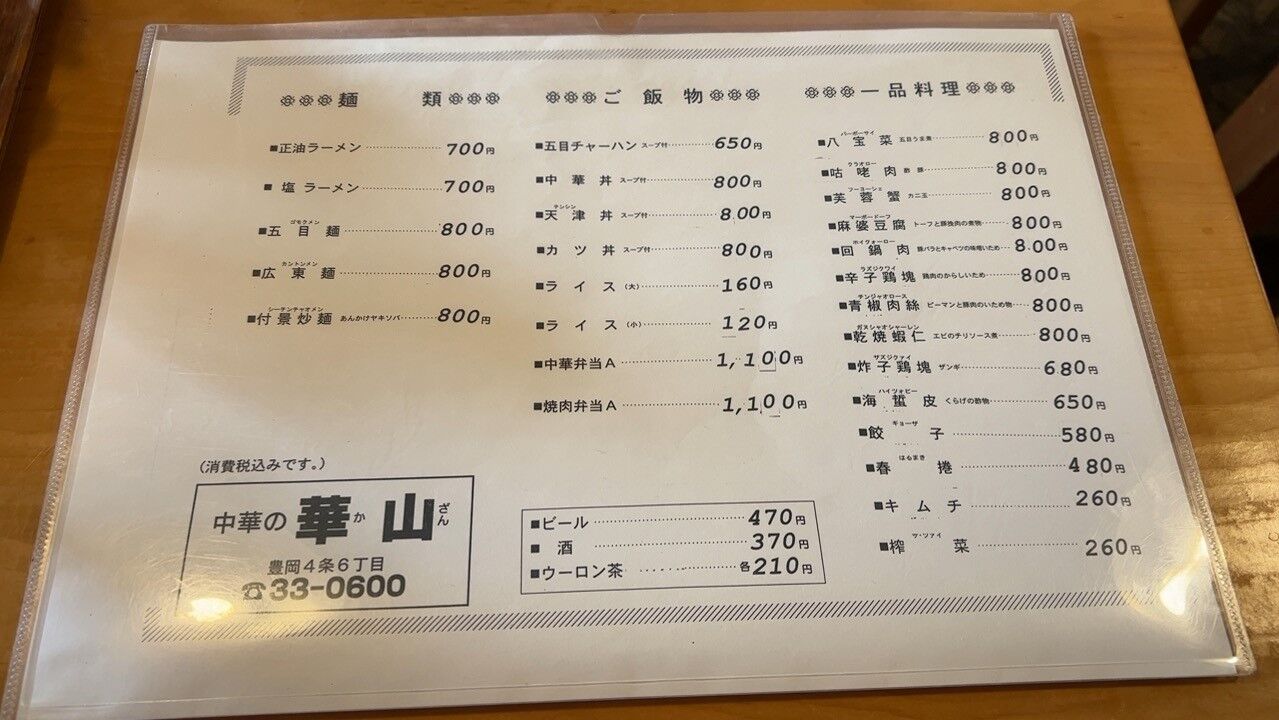 麺 類
■正油ラーメン 700円
■塩 ラーメン 700円
ゴモクメン
■五目麺 800円
カントンメン
■広東麺 800円
シーチンチャオメン
■付景炒麺 あんかけヤキソバ 800円
(消費税込みです。)
中華の 華か山ざん
豊岡4条6丁目
☎33-0600
ご 飯 物
■五目チャーハン スープ付 650円
■中 華 丼 スープ付 800円
テンシン
■天 津 丼 スープ付 800円
■カ ツ 丼 スープ付 800円
■ラ イ ス (大) 160円
■ラ イ ス (小) 120円
■中華弁当A 1,100円
■焼肉弁当A 1,100円
■ビール 470円
■ 酒 370円
■ウーロン茶 各210円
一品料理
パーポーサイ
■八 宝 菜 五目うま煮 800円
クラオロー
■咕 咾 肉 酢 豚 800円
フーヨーシェ
■芙 蓉 蟹 カニ玉 800円
マーボードーフ
■麻 婆 豆 腐 トーフと豚挽肉の煮物 800円
ホイクォーロー
■回 鍋 肉 豚バラとキャベツの味噌いため 800円
ラズジクワイ
■辛 子 鶏 塊 鶏肉のからしいため 800円
チンジャオロース
■青 椒 肉 絲 ピーマンと豚肉のいため物 800円
ガヌシャオシャーレン
■乾 焼 蝦 仁 エビのチリソース煮 800円
サズジクァイ
■炸 子 鶏 塊 ザンギ 680円
ハイツォピー
■海 蜇 皮 くらげの酢物 650円
ギョーザ
■餃 子 580円
はるまき
■春 捲 480円
■キ ム チ 260円
サ・ツァイ
■榨 菜 260円